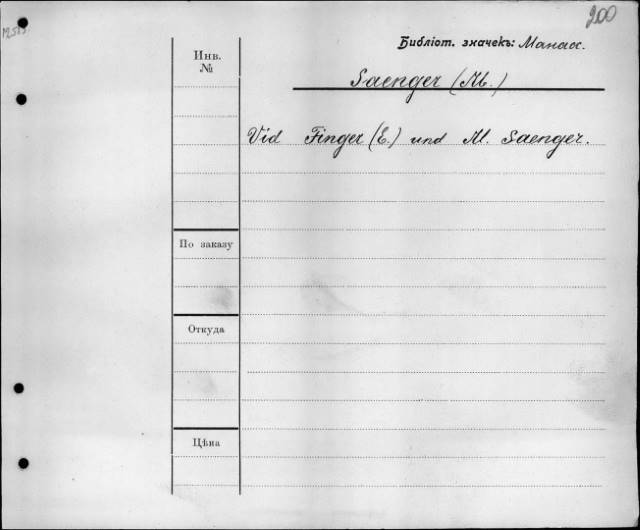 200
Библіот. значекъ: Манасс.
Инв.
№
Saenger (M.)
Vid Finger (E.) und M. Saenger.
По заказу
Откуда
Цѣна